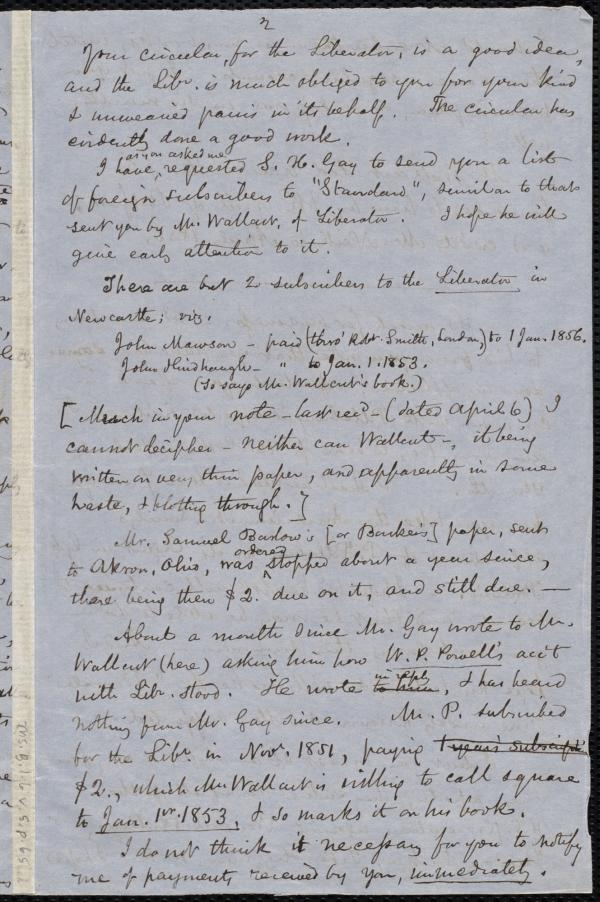 2
Your circular, for the Liberator, is a good idea,
and the Libr. is much obliged to you for your kind
& unwearied pains in its behalf. The circular has
evidently done a good work.
I have, as you asked me, requested S. H. Gay to send you a list
of foreign subscribers to "Standard", similar to that
sent you by Mr. Wallcut, of Liberator. I hope he will
give early attention to it.
There are but 2 subscribers to the Liberator in
Newcastle; viz.
John Mawson - paid (thro' Robt. Smith, London) to 1 Jan. 1856.
John Hindhaugh - " to Jan. 1. 1853.
(So says Mr. Wallcut's book.)
[Much in your note - last recd - (dated April 6) I
cannot decipher - neither can Wallcut -, it being
written on very thin paper, and apparently in some
haste, & blotting through.]
Mr. Samuel Barlow's [or Barker's] paper, sent
to Akron, Ohio, was ordered stopped about a year since,
there being then $2. due on it, and still due. —
About a month since Mr. Gay wrote to Mr.
Wallcut (here) asking him how W. P. Powell's acc't
with Libr. stood. He wrote to him in reply, & has heard
nothing from Mr. Gay since. Mr. P. subscribed
for the Libr. in Novr. 1851, paying 1 year's subscript.
$2., which Mr. Wallcut is willing to call square
to Jan. 1st. 1853, & so marks it on his book.
I do not think it necessary for you to notify
me of payments received by you, immediately.